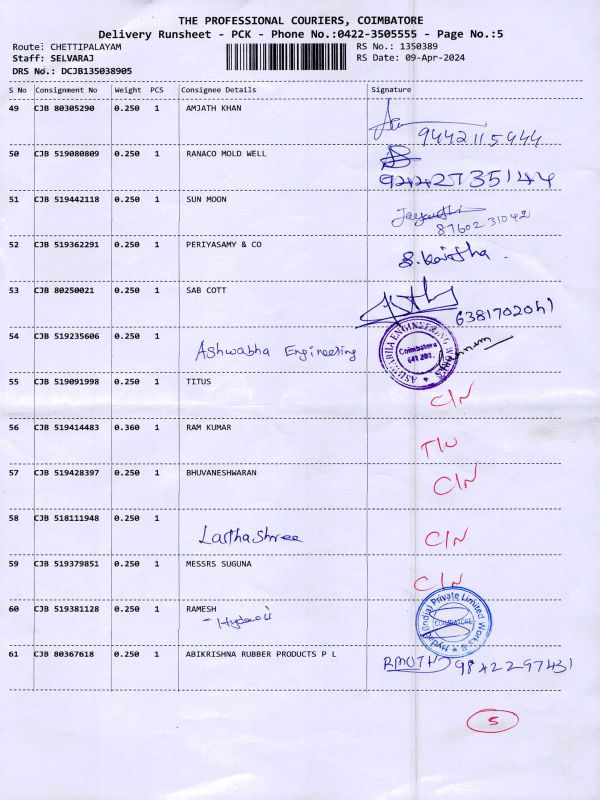 THE PROFESSIONAL COURIERS, COIMBATORE
Delivery Runsheet - PCK - Phone No.:0422-3505555 - Page No.:5
Route: CHETTIPALAYAM RS No.: 1350389
Staff: SELVARAJ RS Date: 09-Apr-2024
DRS No.: DCJB135038905
S No Consignment No Weight PCS Consignee Details Signature
49 CJB 80305290 0.250 1 AMJATH KHAN
9442115944
50 CJB 519080809 0.250 1 RANACO MOLD WELL
9442735144
51 CJB 519442118 0.250 1 SUN MOON
8760231042
52 CJB 519362291 0.250 1 PERIYASAMY & CO
53 CJB 80250021 0.250 1 SAB COTT
6381702041
54 CJB 519235606 0.250 1 Ashwabha Engineering
ASHWABHA ENGINEERING WORKS
Coimbatore
641 201.
55 CJB 519091998 0.250 1 TITUS C/N
56 CJB 519414483 0.360 1 RAM KUMAR T/N
57 CJB 519428397 0.250 1 BHUVANESHWARAN C/N
58 CJB 518111948 0.250 1 C/N
59 CJB 519379851 0.250 1 MESSRS SUGUNA C/N
60 CJB 519381128 0.250 1 RAMESH
(India) Private Limited
COIMBATORE
61 CJB 80367618 0.250 1 ABIKRISHNA RUBBER PRODUCTS P L
9842297431
5